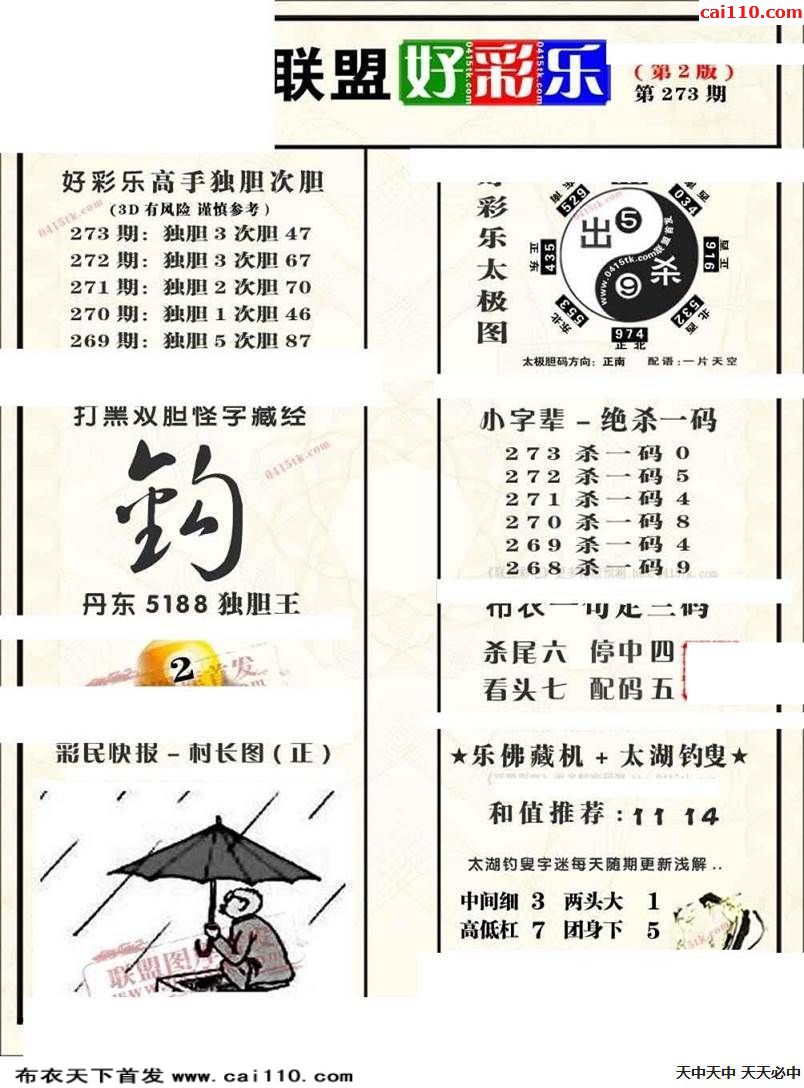 cai110.com
联盟 好彩乐
0415tk.com 0415tk.com
(第2版)
第273期
好彩乐高手独胆次胆
(3D有风险 谨慎参考)
0415tk.com
273期: 独胆3次胆47
272期: 独胆3次胆67
271期: 独胆2次胆70
270期: 独胆1次胆46
269期: 独胆5次胆87
彩乐太极图
0415tk.com
529
034
正东 435
916 西正
东北 553
532 北西
974
正北
出 5
9 杀
www.0415tk.com联盟首发
太极胆码方向: 正南 配语:一片天空
打黑双胆怪字藏经
0415tk.com
钩
丹东 5188 独胆王
2
首发
小字辈-绝杀一码
273杀一码0
272杀一码5
271杀一码4
270杀一码8
269杀一码4
268杀一码9
布衣一句定三码
杀尾六 停中四
看头七 配码五
彩民快报-村长图(正)
联盟图库
★乐佛藏机+太湖钓叟★
和值推荐:11 14
太湖钓叟字迷每天随期更新浅解..
中间细 3 两头大 1
高低杠 7 团身下 5
布衣天下首发 www.cai110.com
天中天中 天天必中